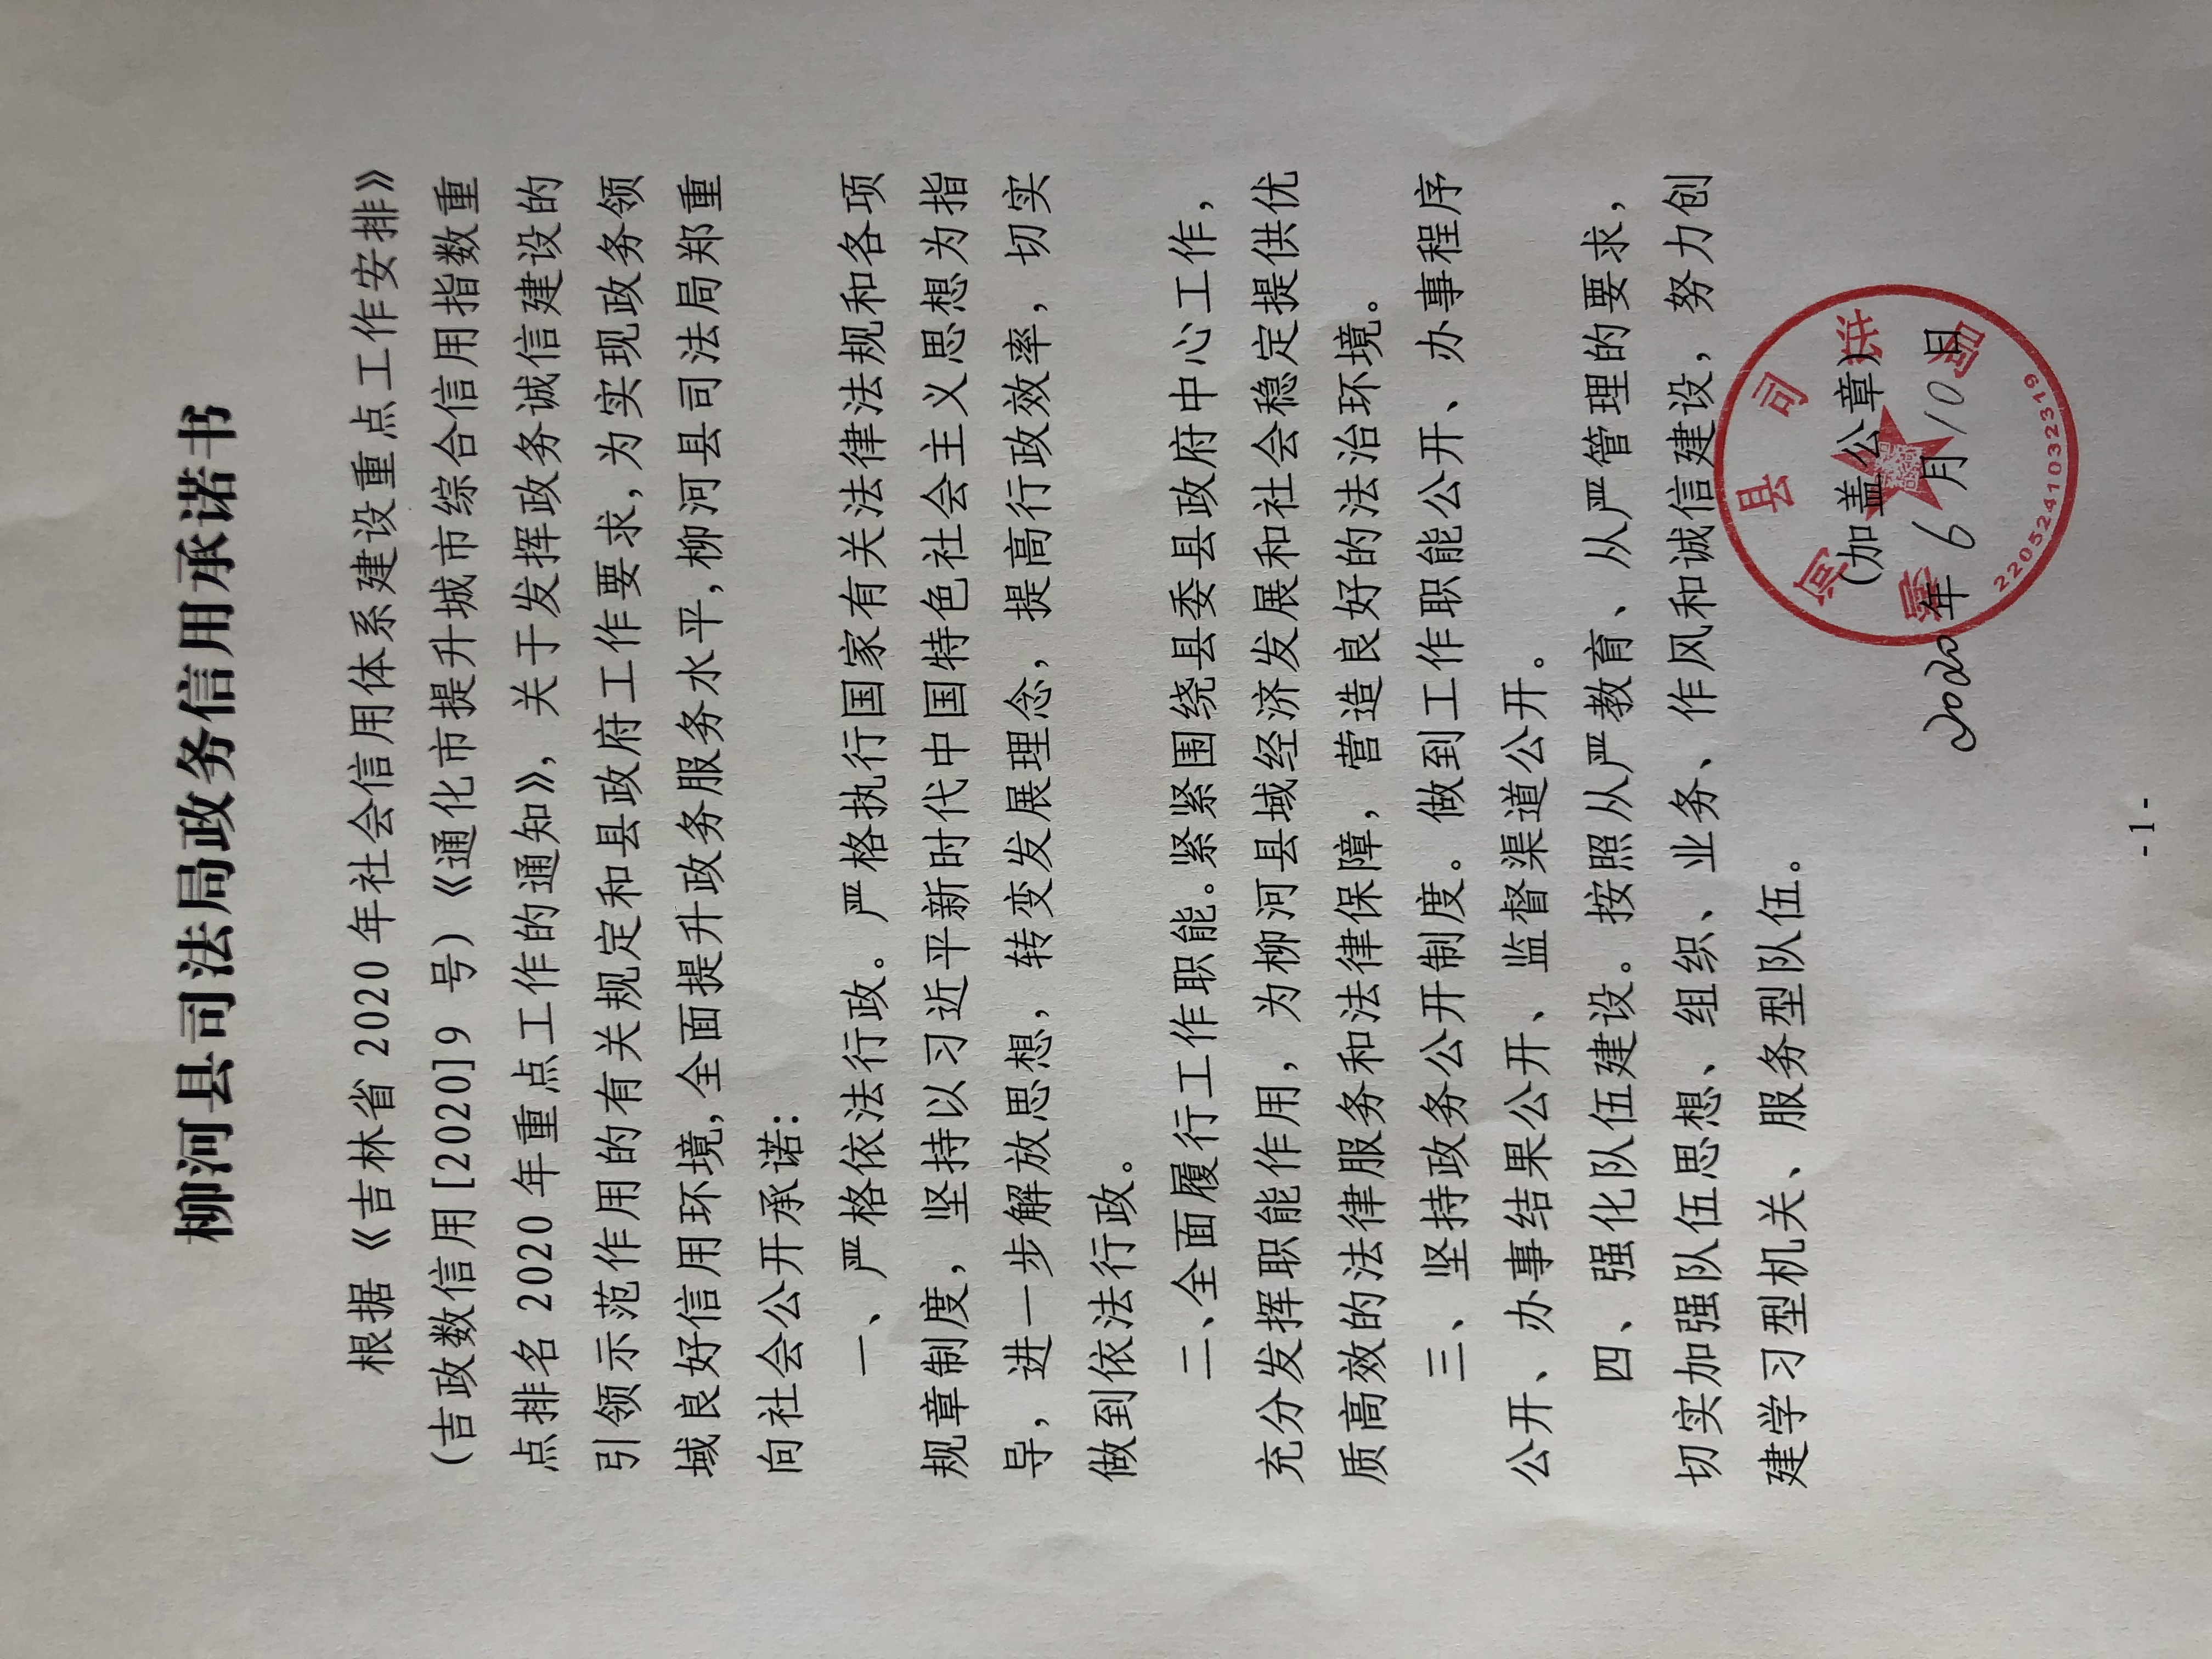 柳河县司法局政务信用承诺书
根据《吉林省2020年社会信用体系建设重点工作安排》
（吉政数信用[2020]9 号）《通化市提升城市综合信用指数重
点排名2020年重点工作的通知》，关于发挥政务诚信建设的
引领示范作用的有关规定和县政府工作要求，为实现政务领
域良好信用环境，全面提升政务服务水平，柳河县司法局郑重
向社会公开承诺：
一、严格依法行政。严格执行国家有关法律法规和各项
规章制度，坚持以习近平新时代中国特色社会主义思想为指
导，进一步解放思想，转变发展理念，提高行政效率，切实
做到依法行政。
二、全面履行工作职能。紧紧围绕县委县政府中心工作，
充分发挥职能作用，为柳河县域经济发展和社会稳定提供优
质高效的法律服务和法律保障，营造良好的法治环境。
三、坚持政务公开制度。做到工作职能公开、办事程序
公开、办事结果公开、监督渠道公开。
四、强化队伍建设。按照从严教育、从严管理的要求，
切实加强队伍思想、组织、业务、作风和诚信建设，努力创
建学习型机关、服务型队伍。
（加盖公章）
2020年6月10日
柳河县司法局
2205241032319
-1-